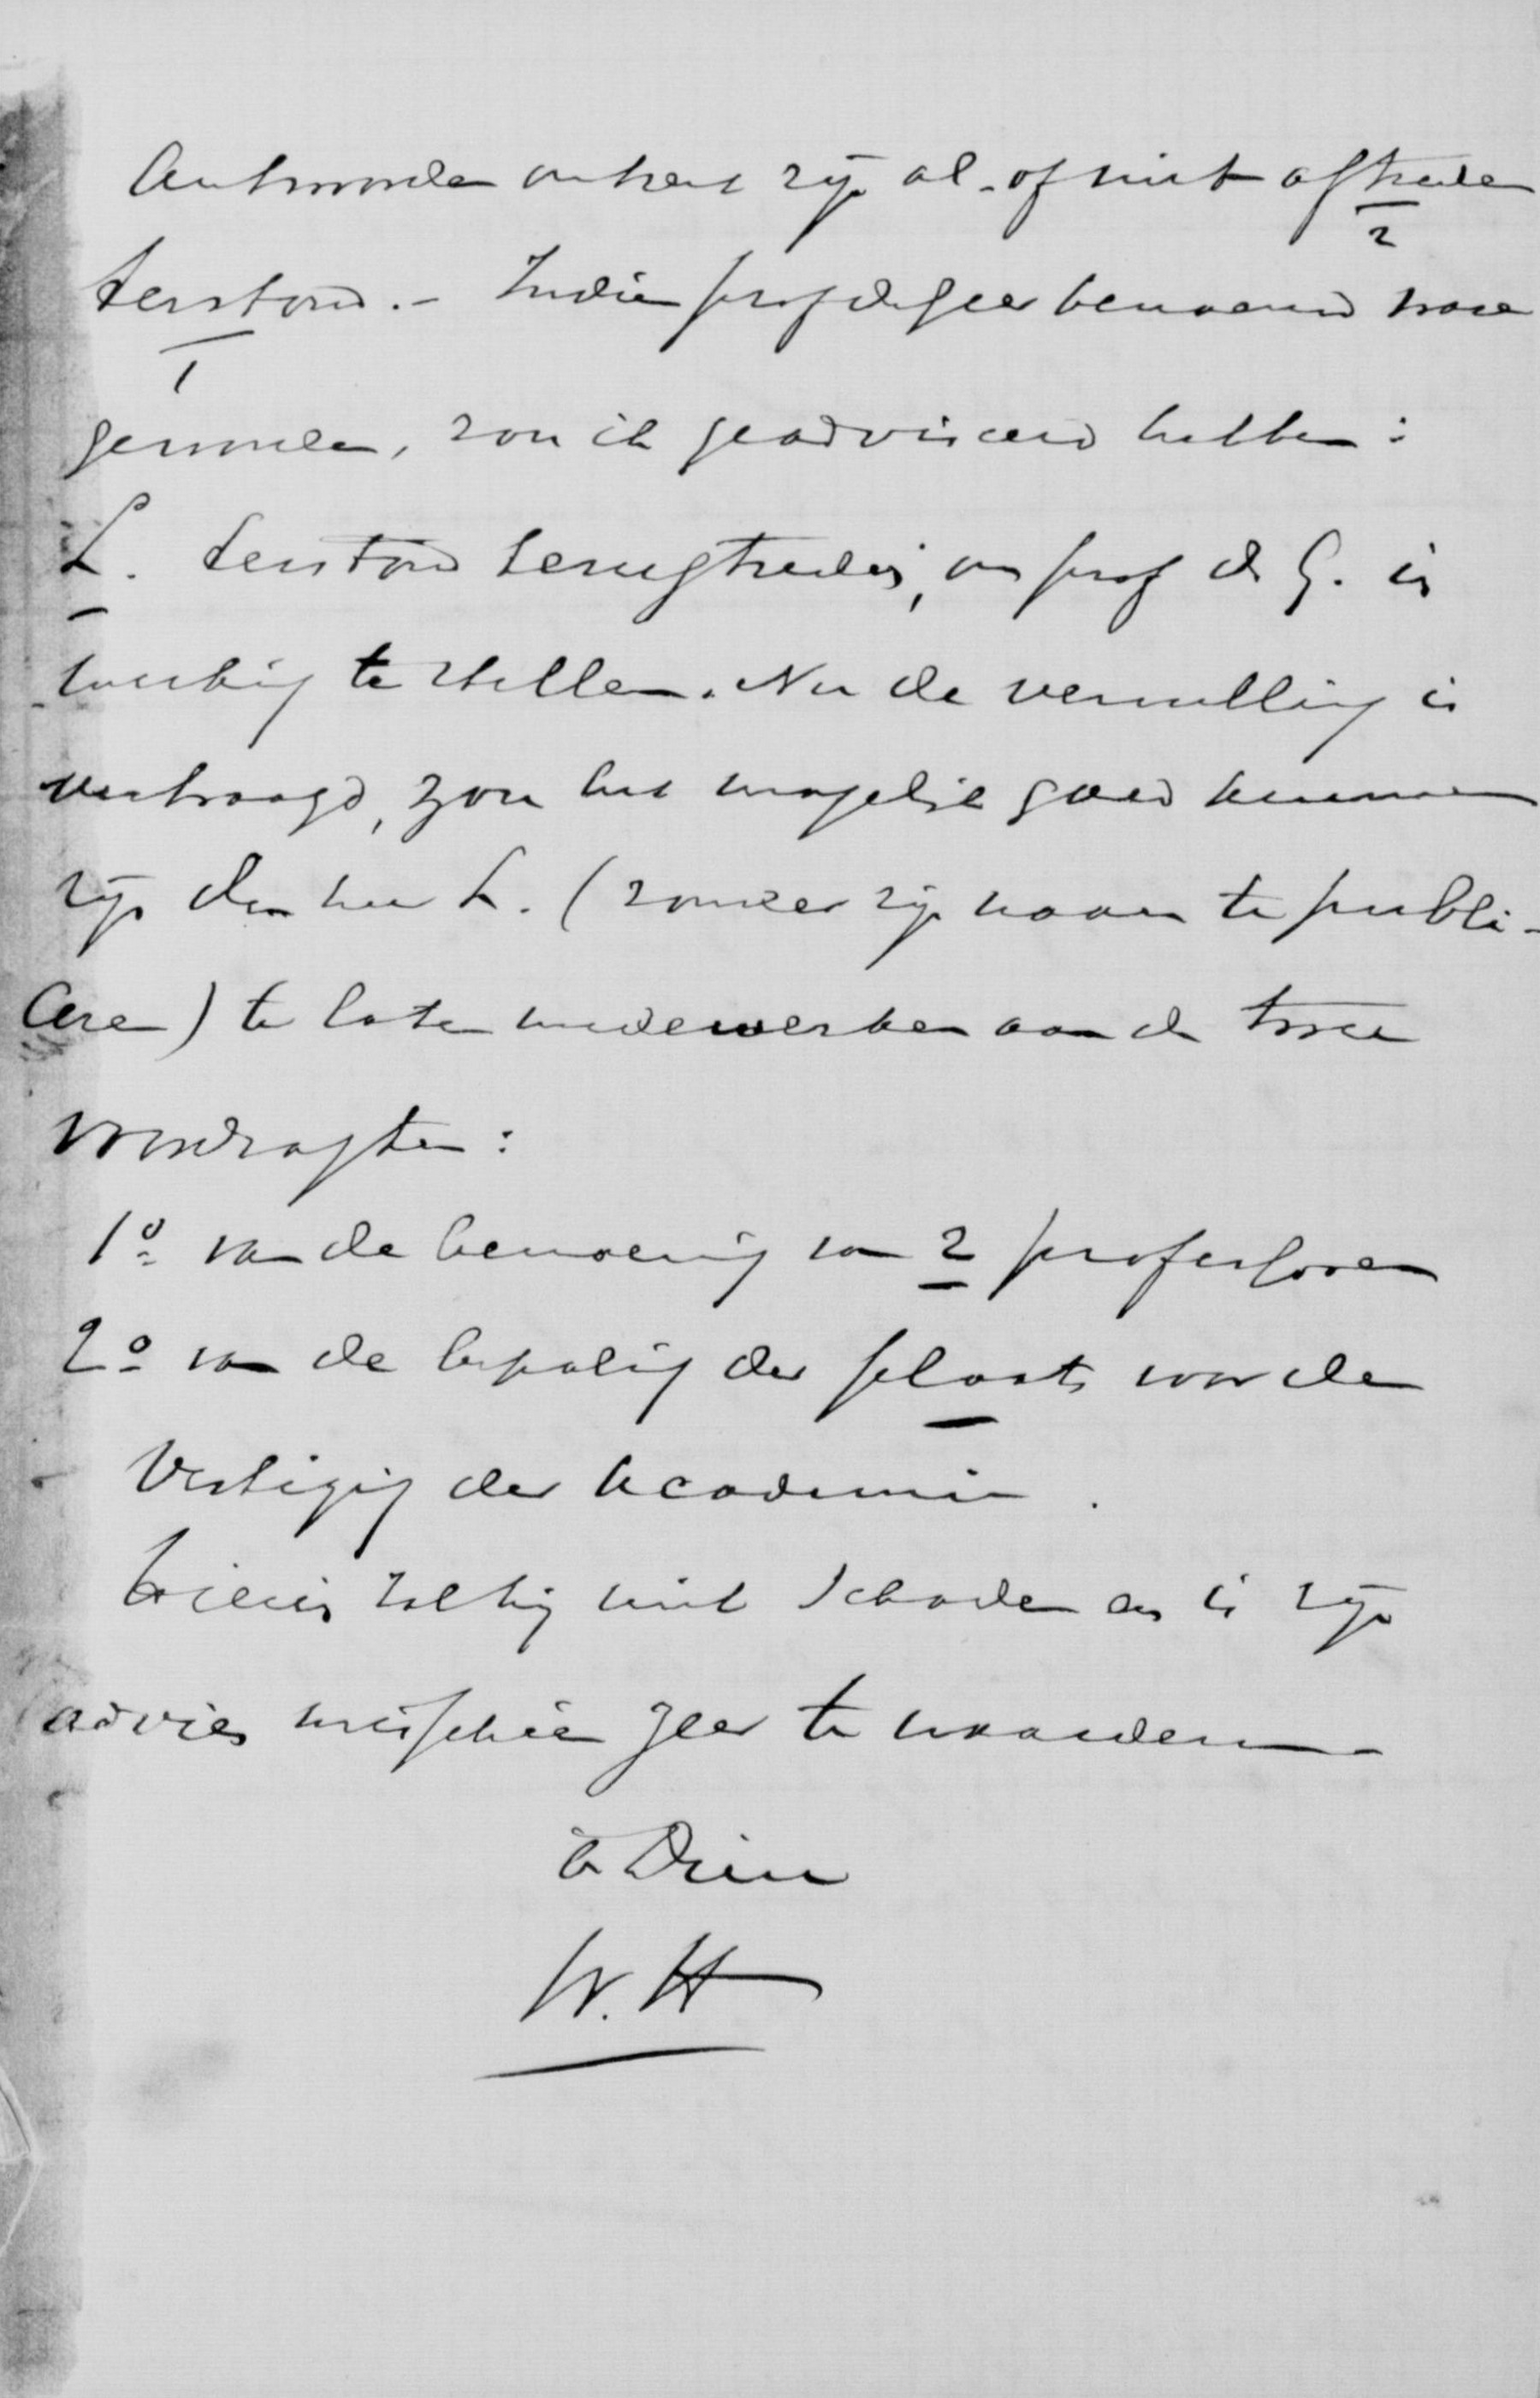 Antwoorden omtrent zijn al- of niet aftreden
2
terstond. - Indien prof de Geer benoemd ware
1
geworden, zou ik geadviseerd hebben:
L. terstond terugtreden, om prof de G. in
werking te stellen. Nu de vervulling is
vertraagd, zou het mogelijk goed kunnen
zijn den heer L. (zonder zijn naam te publi-
ceren) te laten medewerken aan de twee
voordragten:
1o van de benoeming van 2 professoren
2o van de bepaling der plaats voor de
Vestiging der Academie.
Hierin zal hij niet schaden en is zijn
advies misschien zeer te waarderen
à Dieu
W. H